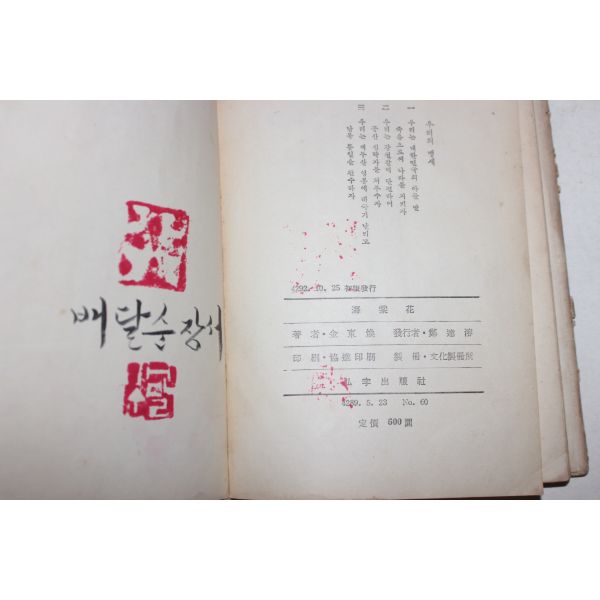 배달순 장서
우리의 맹세
一 우리는 대한민국의 아들 딸
죽음으로써 나라를 지키자
二 우리는 강철같이 단결하여
공산 침략자를 쳐부수자
三 우리는 백두산 영봉에 태극기 날리고
남북 통일을 완수하자
4292. 10. 25 初版發行
海棠花
著者・金東煥 發行者・鄭達溶
印刷・協進印刷 製冊・文化製冊所
弘字出版社
4289. 5. 23 No. 60
定價 600圜